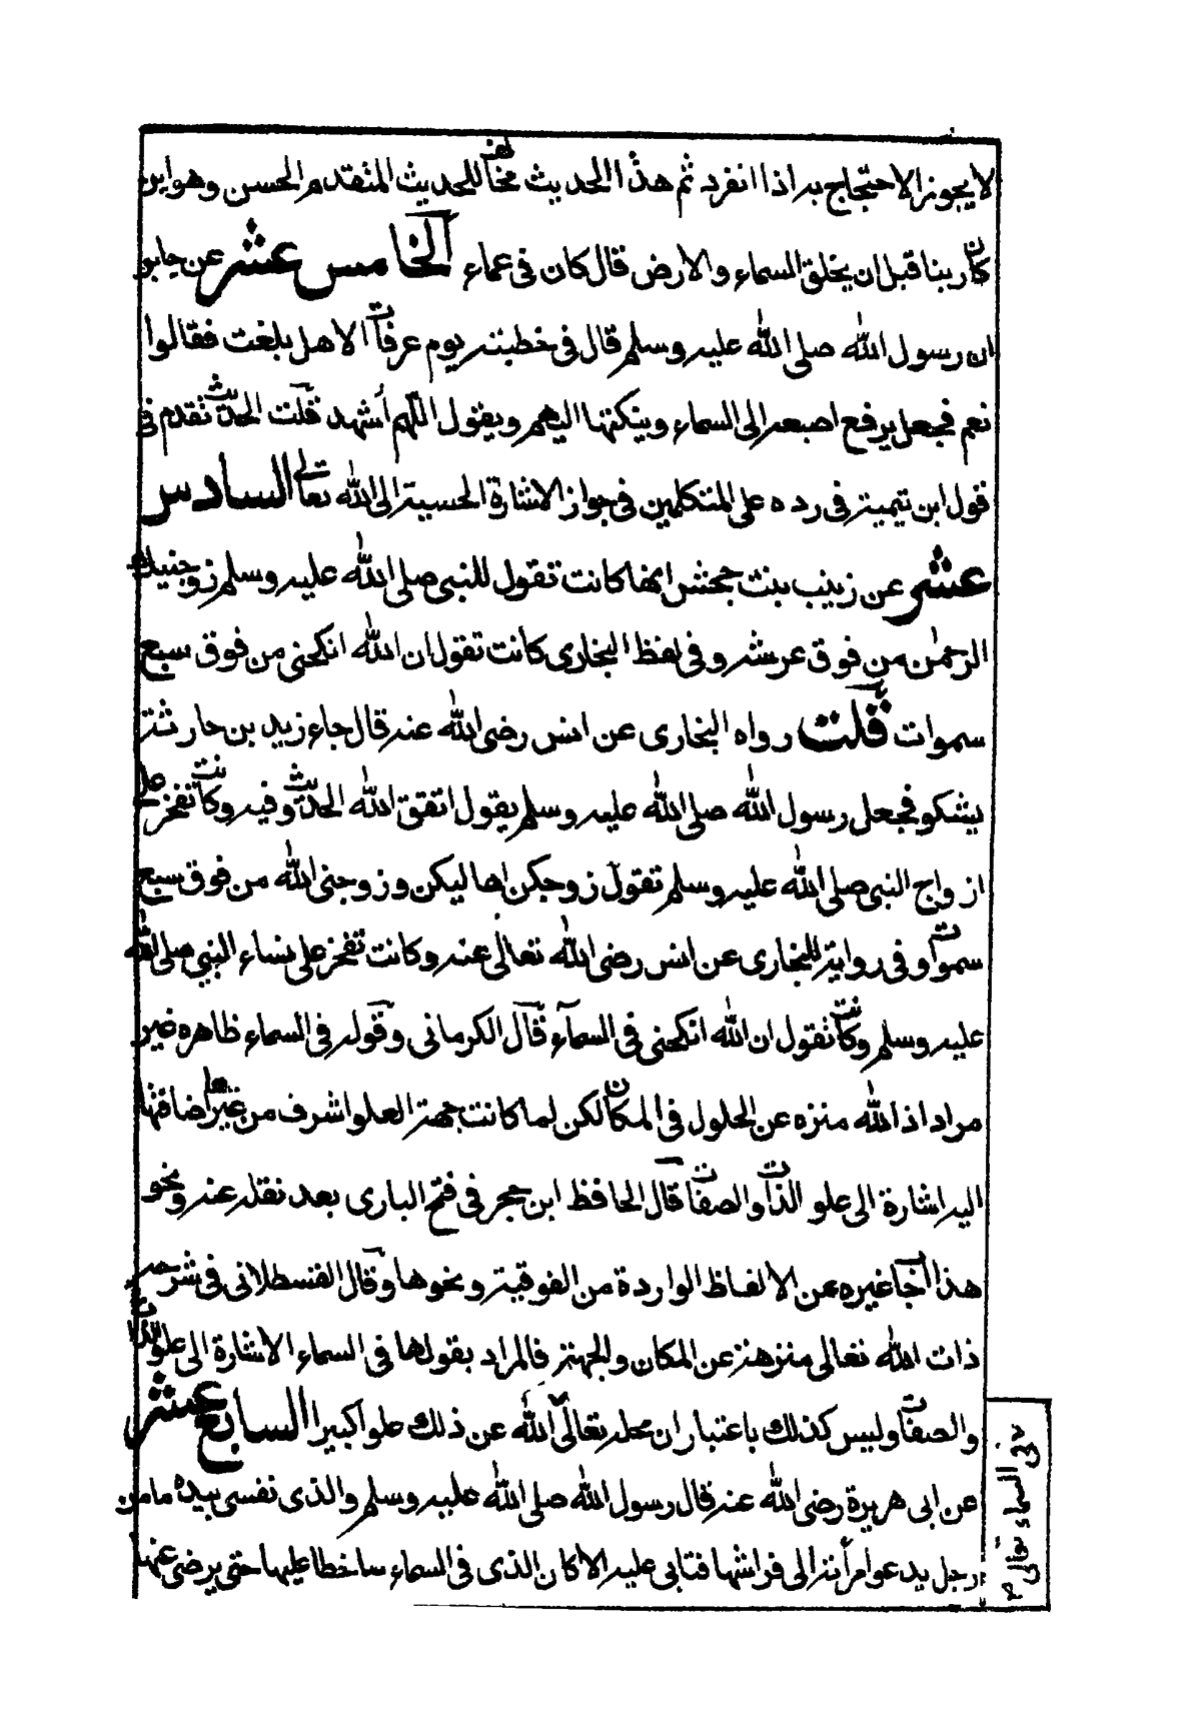 لا يجوز الاحتجاج به اذا انفرد ثم هذا الحديث مخالف للحديث المتقدم الحسن وهو اين
كان ربنا قبل ان يخلق السماء والارض قال كان فى عماء الخامس عشر عن جابر
ان رسول الله صلى الله عليه وسلم قال فى خطبته يوم عرفات الا هل بلغت فقالوا
نعم فجعل يرفع اصبعه الى السماء وينكتها اليهم ويقول اللهم اشهد قلت الحديث تقدم فى
قول ابن تيمية فى رده على المتكلمين فى جواز الاشارة الحسية الى الله تعالى السادس
عشر عن زينب بنت جحش انها كانت تقول للنبى صلى الله عليه وسلم زوجنيك
الرحمن من فوق عرشه وفى لفظ البخارى كانت تقول ان الله انكحنى من فوق سبع
سموات قلت رواه البخارى عن انس رضى الله عنه قال جاء زيد بن حارثة
يشكو فجعل رسول الله صلى الله عليه وسلم يقول اتقق الله الحديث وفيه وكانت تفخر على
ازواج النبى صلى الله عليه وسلم تقول زوجكن اهاليكن وزوجنى الله من فوق سبع
سموات وفى رواية للبخارى عن انس رضى الله تعالى عنه وكانت تفخر على نساء النبي صلى الله
عليه وسلم وكانت تقول ان الله انكحنى فى السماء قال الكرمانى وقوله فى السماء ظاهره غير
مراد اذ الله منزه عن الحلول فى المكان لكن لما كانت جهة العلو اشرف من غيرها اضافتها
اليه اشارة الى علو الذات والصفات قال الحافظ ابن حجر فى فتح البارى بعد نقله عنه وبنحو
هذا اجاب غيره عن الالفاظ الواردة من الفوقية ونحوها وقال القسطلانى فى شرحه
ذات الله تعالى منزهة عن المكان والجهة فالمراد بقولها فى السماء الاشارة الى علو الذات
والصفات وليس كذلك باعتبار ان محله تعالى الله عن ذلك علوا كبيرا السابع عشر
عن ابى هريرة رضى الله عنه قال رسول الله صلى الله عليه وسلم والذى نفسى بيده ما من
رجل يدعو امرأته الى فراشها فتابى عليه الا كان الذى فى السماء ساخطا عليها حتى يرضى عنها
فى السماء تعالى